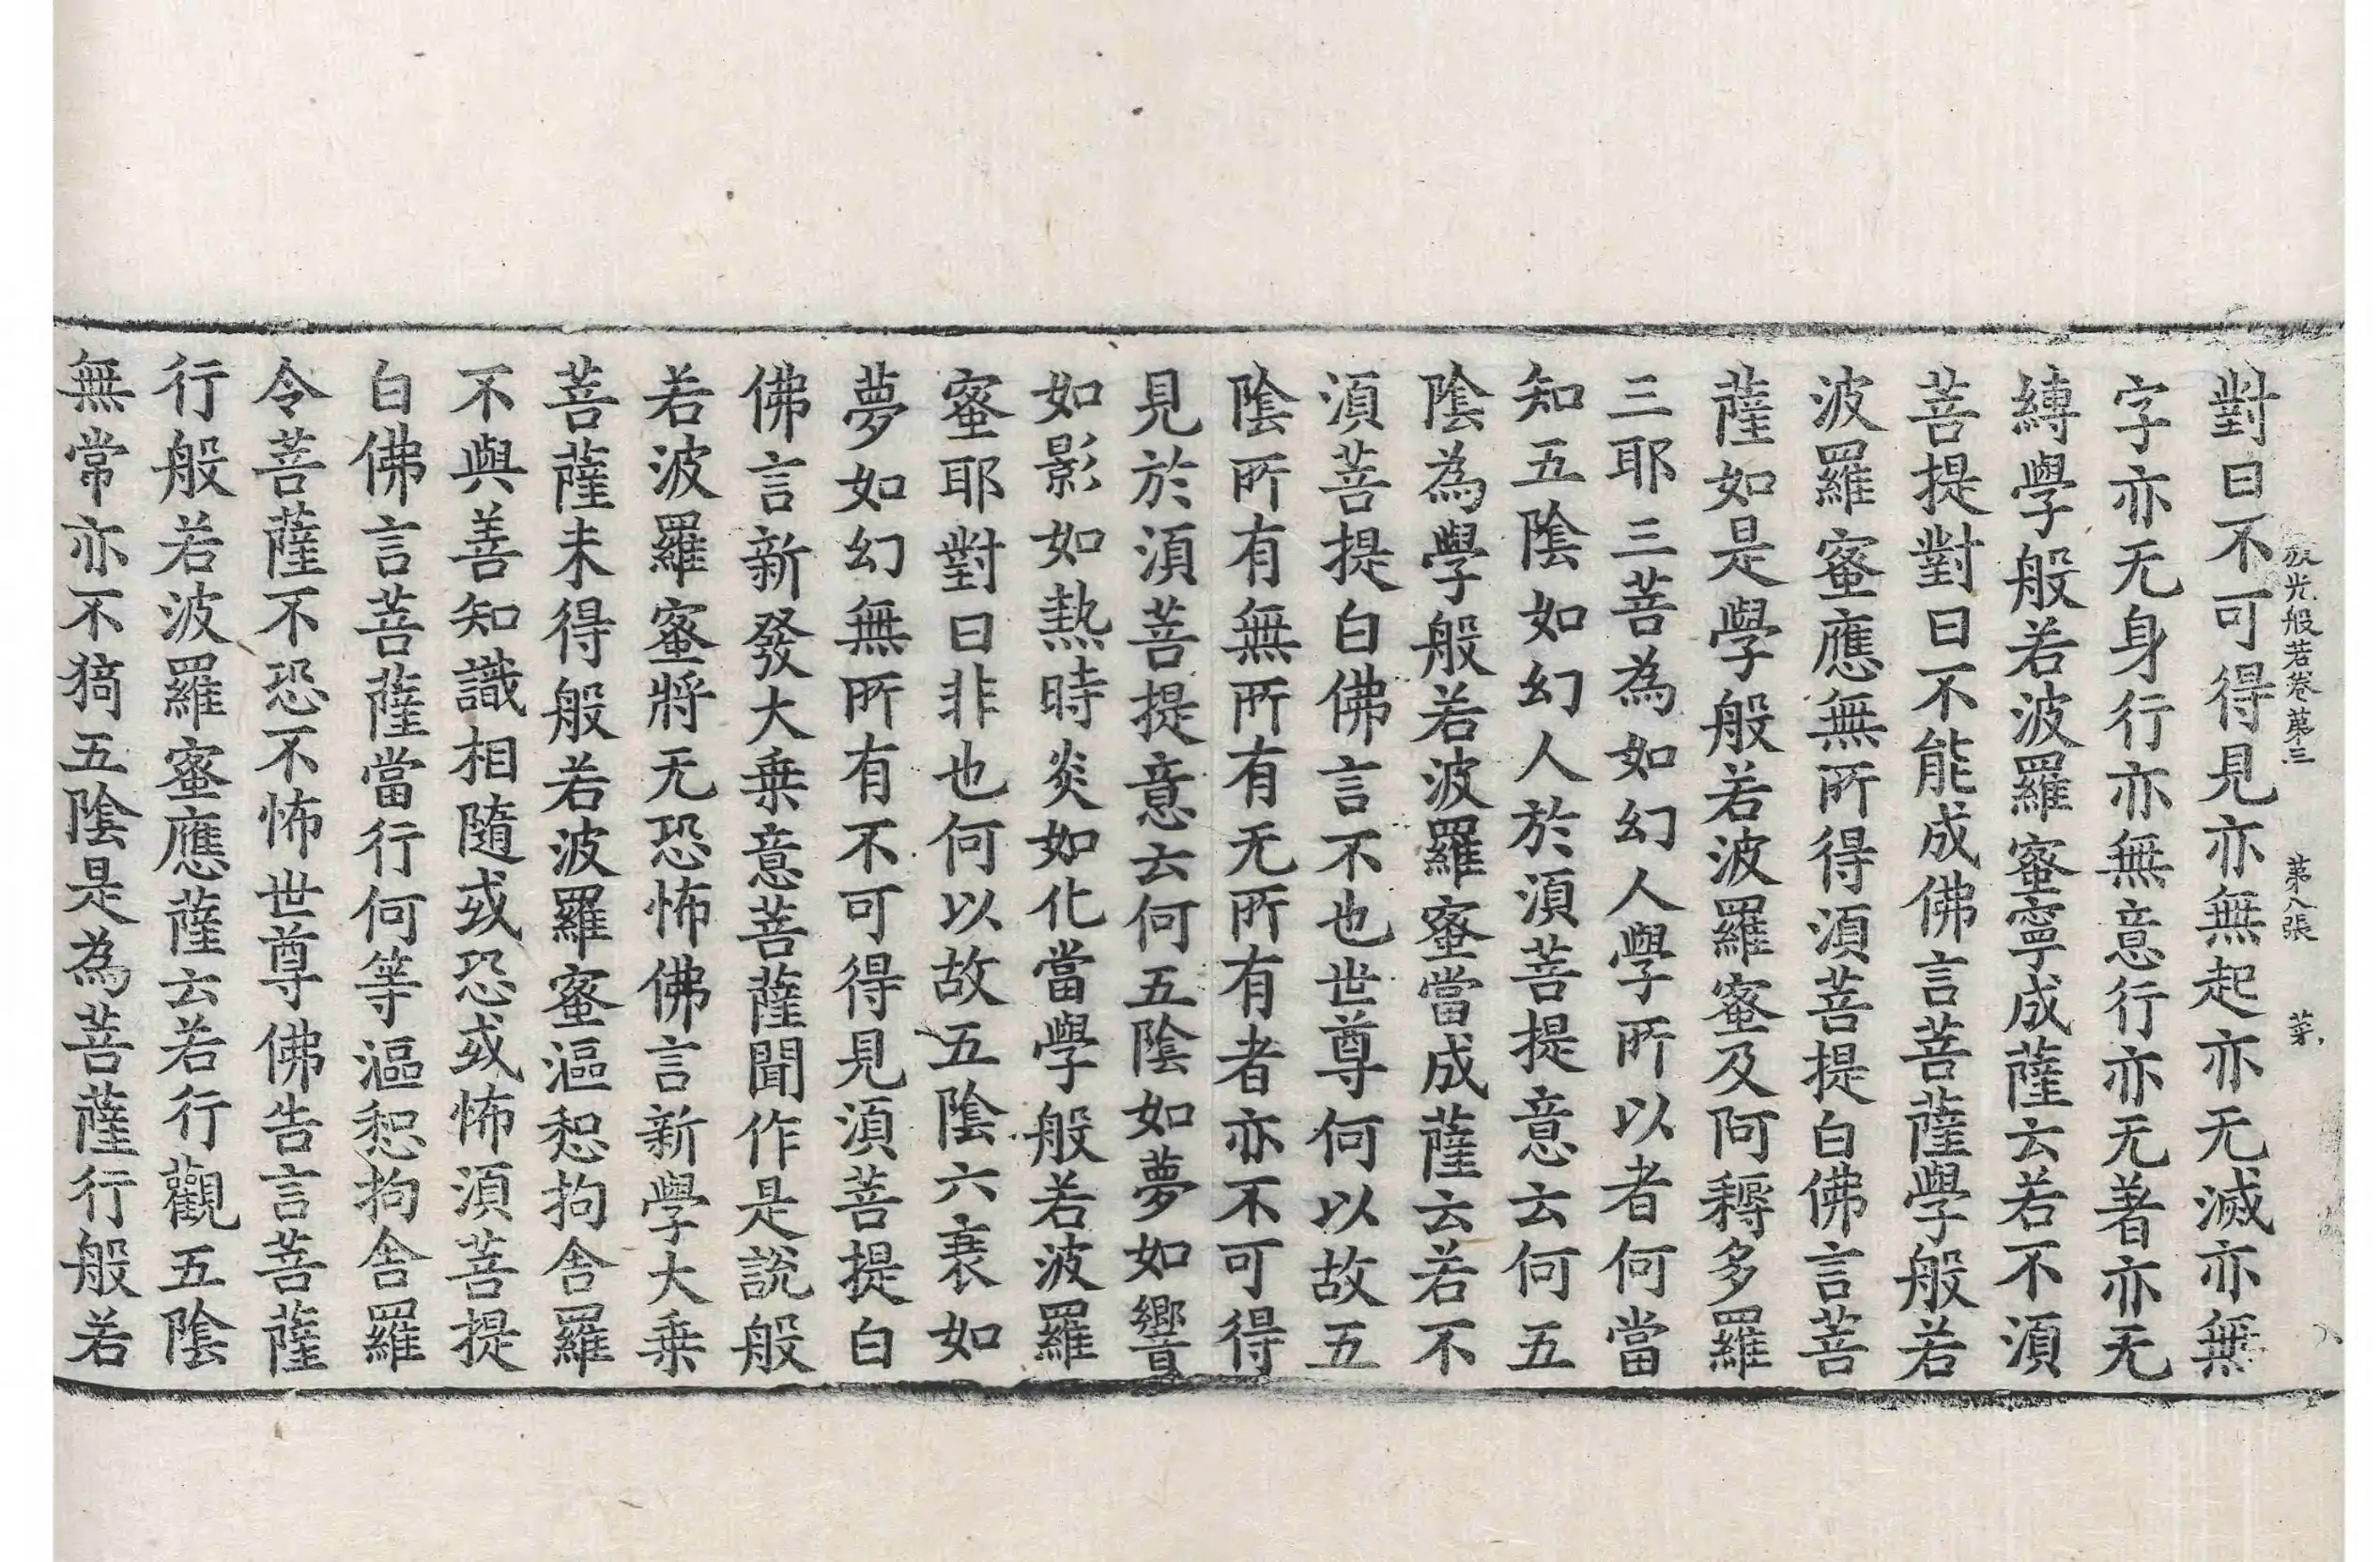 放光般若卷第三 第八張 菜
對曰不可得見亦無起亦无滅亦無
字亦无身行亦無意行亦无著亦无
縛學般若波羅蜜寧成薩云若不須
菩提對曰不能成佛言菩薩學般若
波羅蜜應無所得須菩提白佛言菩
薩如是學般若波羅蜜及阿耨多羅
三耶三菩為如幻人學所以者何當
知五陰如幻人於須菩提意云何五
陰為學般若波羅蜜當成薩云若不
須菩提白佛言不也世尊何以故五
陰所有無所有无所有者亦不可得
見於須菩提意云何五陰如夢如響
如影如熱時炎如化當學般若波羅
蜜耶對曰非也何以故五陰六衰如
夢如幻無所有不可得見須菩提白
佛言新發大乗意菩薩聞作是說般
若波羅蜜將无恐怖佛言新學大乗
菩薩未得般若波羅蜜漚惒拘舍羅
不與善知識相隨或恐或怖須菩提
白佛言菩薩當行何等漚惒拘舍羅
令菩薩不恐不怖世尊佛告言菩薩
行般若波羅蜜應薩云若行觀五陰
無常亦不猗五陰是為菩薩行般若